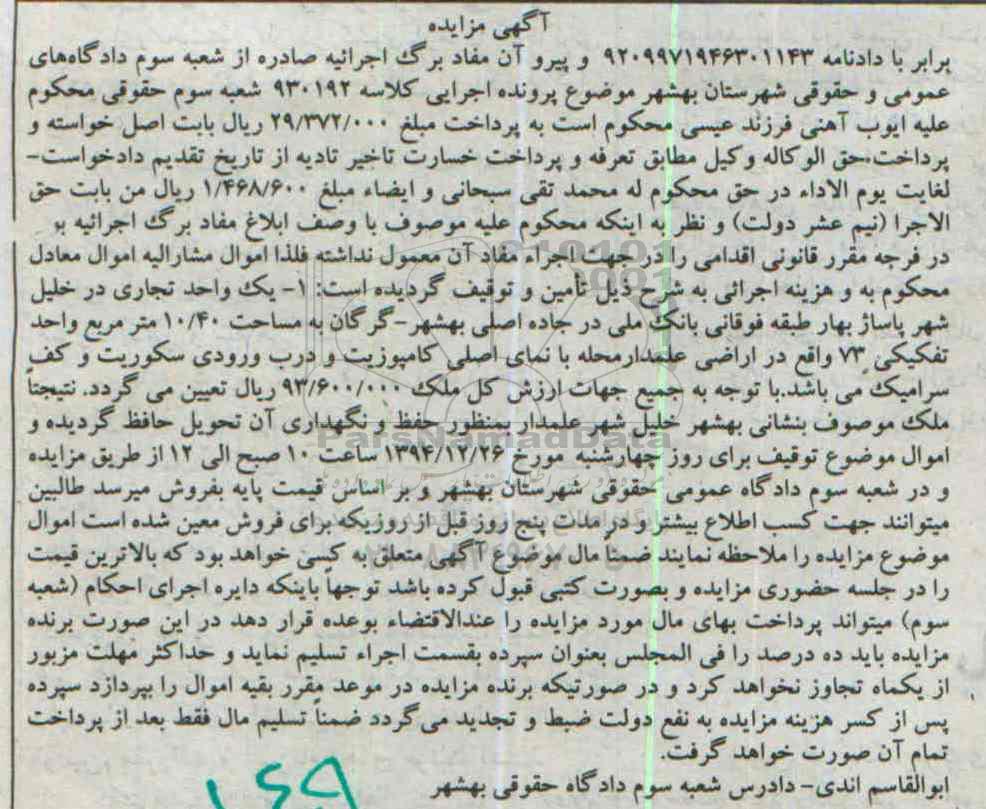 آگهی مزایده
برابر با دادنامه ۹۲۰۹۹۷۱۹۴۶۳۰۱۱۴۳ و پیرو آن مفاد برگ اجرائیه صادره از شعبه سوم دادگاه‌های
عمومی و حقوقی شهرستان بهشهر موضوع پرونده اجرایی کلاسه ۹۳۰۱۹۲ شعبه سوم حقوقی محکوم
علیه ایوب آهنی فرزند عیسی محکوم است به پرداخت مبلغ ۲۹/۳۷۲/۰۰۰ ریال بابت اصل خواسته و
پرداخت حق الوکاله وکیل مطابق تعرفه و پرداخت خسارت تاخیر تادیه از تاریخ تقدیم دادخواست-
لغایت یوم الاداء در حق محکوم له محمد تقی سبحانی و ایضاء مبلغ ۱/۴۶۸/۶۰۰ ریال من بابت حق
الاجرا (نیم عشر دولت) و نظر به اینکه محکوم علیه موصوف با وصف ابلاغ مفاد برگ اجرائیه بو
در فرجه مقرر قانونی اقدامی را در جهت اجراء مفاد آن معمول نداشته فلذا اموال مشارالیه اموال معادل
محکوم به و هزینه اجرائی به شرح ذیل تأمین و توقیف گردیده است: ۱- یک واحد تجاری در خلیل
شهر پاساژ بهار طبقه فوقانی بانک ملی در جاده اصلی بهشهر-گرگان به مساحت ۱۰/۴۰ متر مربع واحد
تفکیکی ۷۳ واقع در اراضی علمدارمحله با نمای اصلی کامپوزیت و درب ورودی سکوریت و کف
سرامیک می باشد.با توجه به جمیع جهات ارزش کل ملک ۹۳/۶۰۰/۰۰۰ ریال تعیین می گردد. نتیجتاً
ملک موصوف بنشانی بهشهر خلیل شهر علمدار بمنظور حفظ و نگهداری آن تحویل حافظ گردیده و
اموال موضوع توقیف برای روز چهارشنبه مورخ ۱۳۹۴/۱۲/۲۶ ساعت ۱۰ صبح الی ۱۲ از طریق مزایده
و در شعبه سوم دادگاه عمومی حقوقی شهرستان بهشهر و بر اساس قیمت پایه بفروش میرسد طالبین
میتوانند جهت کسب اطلاع بیشتر و در مدت پنج روز قبل از روزیکه برای فروش معین شده است اموال
موضوع مزایده را ملاحظه نمایند ضمناً مال موضوع آگهی متعلق به کسی خواهد بود که بالاترین قیمت
را در جلسه حضوری مزایده و بصورت کتبی قبول کرده باشد توجهاً باینکه دایره اجرای احکام (شعبه
سوم) میتواند پرداخت بهای مال مورد مزایده را عندالاقتضاء بوعده قرار دهد در این صورت برنده
مزایده باید ده درصد را فی المجلس بعنوان سپرده بقسمت اجراء تسلیم نماید و حداکثر مهلت مزبور
از یکماه تجاوز نخواهد کرد و در صورتیکه برنده مزایده در موعد مقرر بقیه اموال را بپردازد سپرده
پس از کسر هزینه مزایده به نفع دولت ضبط و تجدید می گردد ضمناً تسلیم مال فقط بعد از پرداخت
تمام آن صورت خواهد گرفت.
ابوالقاسم اندی- دادرس شعبه سوم دادگاه حقوقی بهشهر
ParsNamadData